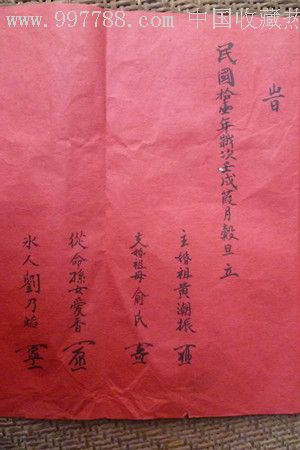 www.997788.com 中国收藏热
旹
民國拾壹年歲次壬戌葭月穀旦 立
主婚祖黄潮振
支婚祖母俞氏
從命孫女愛香
氷人劉乃